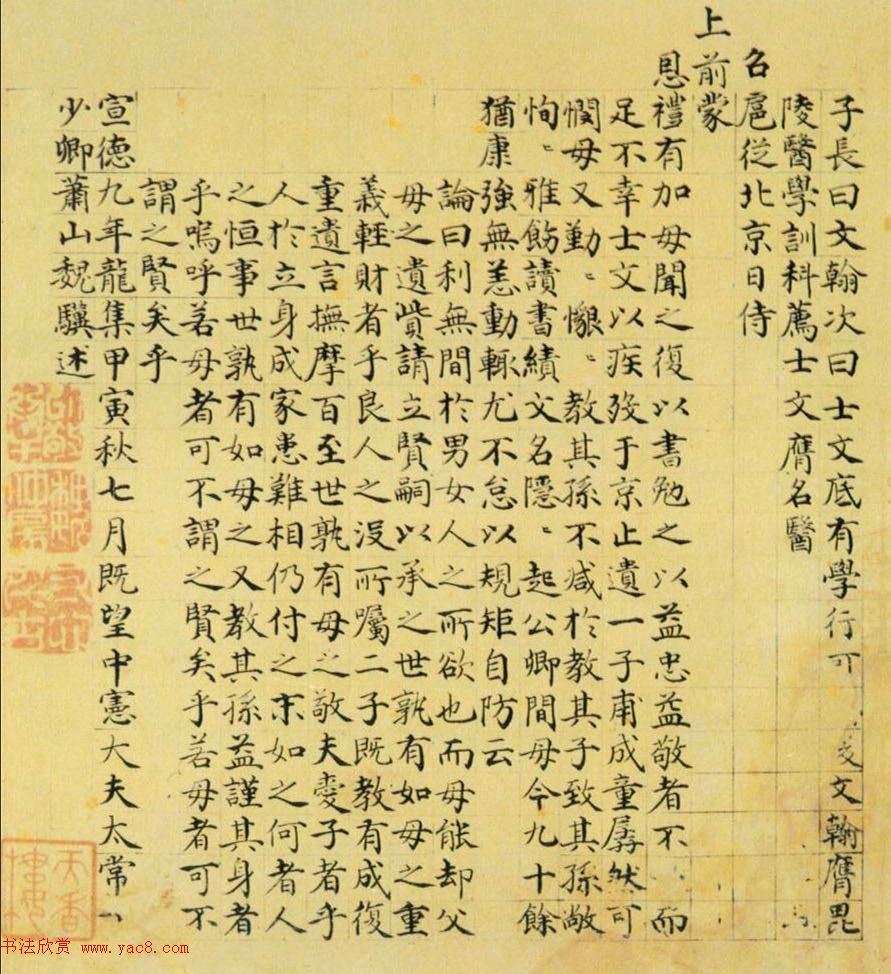 子長曰文翰次曰士文底有學行可文翰膺毘
陵醫學訓科薦士文膺名醫
名扈從北京日侍
上前蒙
恩禮有加母聞之復以書勉之以益忠益敬者不而
足不幸士文以疾歿于京止遺一子甫成童孱然可
憫母又勤〻懇〻教其孫不减於教其子致其孫敞
恂〻雅飭讀書績文名隱〻起公卿間母今九十餘
猶康強無恙動輒尤不怠以規矩自防云
論曰利無間於男女人之所欲也而母能却父
母之遺貲請立賢嗣以承之世孰有如母之重
義輕財者乎良人之沒所囑二子既教有成復
重遺言撫摩百至世孰有母之敬夫愛子者乎
人於立身成家患難相仍付之末如之何者人
之恒事世孰有如母之又教其孫益謹其身者
乎嗚呼若母者可不謂之賢矣乎若母者可不
謂之賢矣乎
宣德九年龍集甲寅秋七月既望中憲大夫太常
少卿蕭山魏驥述
天香樓
书法欣赏 www.yac8.com